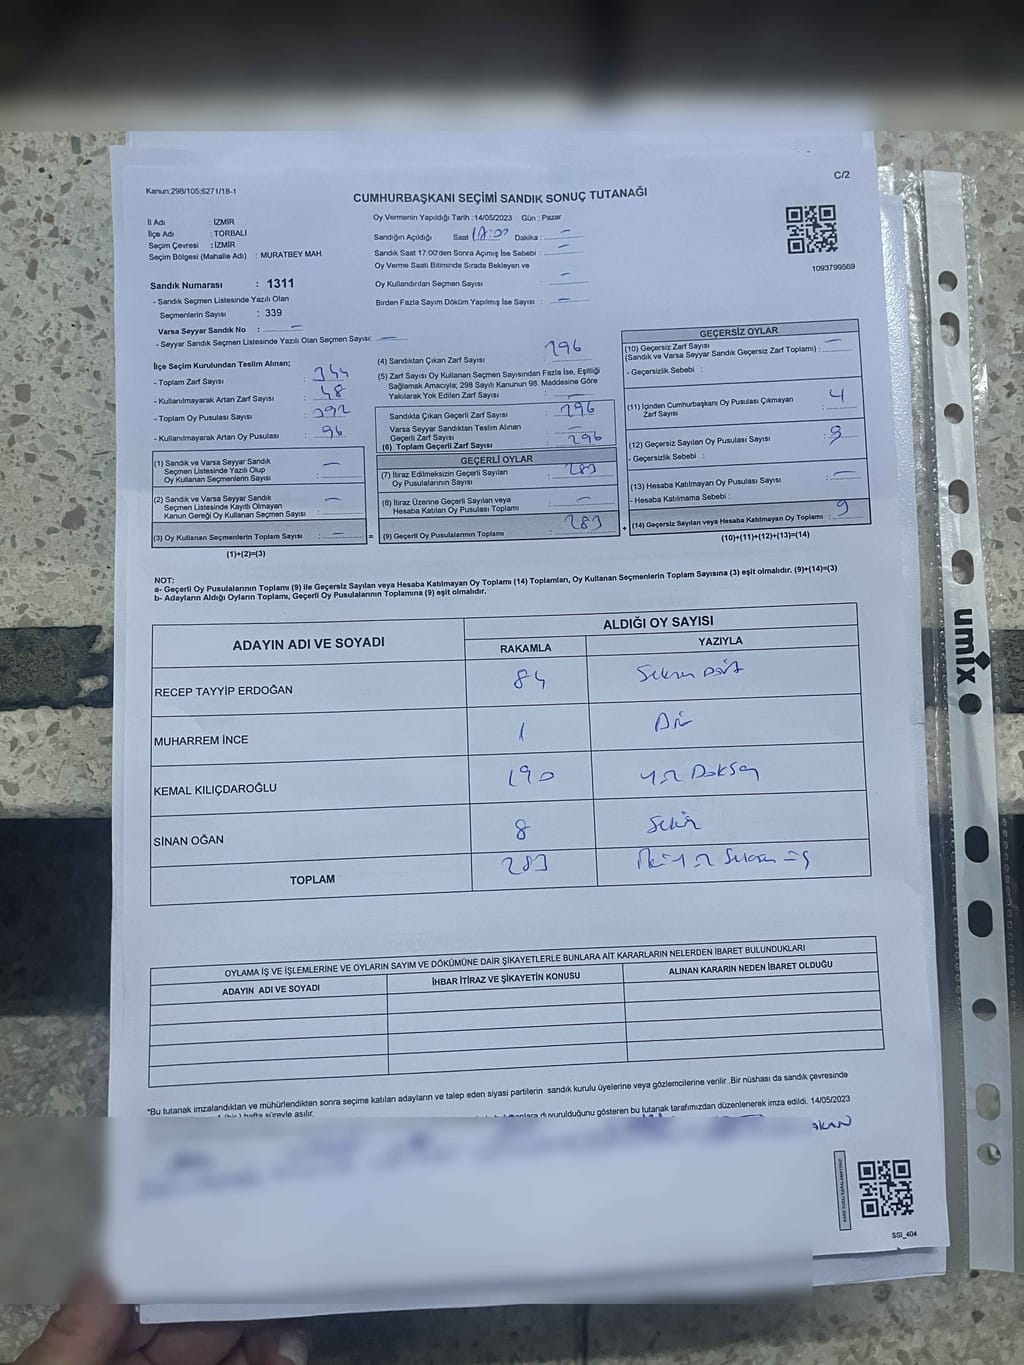 C/2
Kanun;298/105;6271/18-1
CUMHURBAŞKANI SEÇİMİ SANDIK SONUÇ TUTANAĞI
İl Adı : İZMİR
İlçe Adı : TORBALI
Seçim Çevresi : İZMİR
Seçim Bölgesi (Mahalle Adı) : MURATBEY MAH.
Oy Vermenin Yapıldığı Tarih :14/05/2023 Gün : Pazar
Sandığın Açıldığı Saat Dakika : —
Sandık Saat 17:00'den Sonra Açımış İse Sebebi : —
Oy Verme Saati Bitiminde Sırada Bekleyen ve
Oy Kullandırılan Seçmen Sayısı : —
Birden Fazla Sayım Döküm Yapılmış İse Sayısı : —
1093799569
Sandık Numarası : 1311
- Sandık Seçmen Listesinde Yazılı Olan
Seçmenlerin Sayısı : 339
Varsa Seyyar Sandık No : —
- Seyyar Sandık Seçmen Listesinde Yazılı Olan Seçmen Sayısı: —
İlçe Seçim Kurulundan Teslim Alınan;
- Toplam Zarf Sayısı : 344
- Kullanılmayarak Artan Zarf Sayısı : 48
- Toplam Oy Pusulası Sayısı : 392
- Kullanılmayarak Artan Oy Pusulası : 96
(1) Sandık ve Varsa Seyyar Sandık
Seçmen Listesinde Yazılı Olup
Oy Kullanan Seçmenlerin Sayısı : —
(2) Sandık ve Varsa Seyyar Sandık
Seçmen Listesinde Kayıtlı Olmayan
Kanun Gereği Oy Kullanan Seçmen Sayısı : —
(3) Oy Kullanan Seçmenlerin Toplam Sayısı : —
(1)+(2)=(3)
(4) Sandıktan Çıkan Zarf Sayısı : 296
(5) Zarf Sayısı Oy Kullanan Seçmen Sayısından Fazla İse, Eşitliği
Sağlamak Amacıyla; 298 Sayılı Kanunun 98. Maddesine Göre
Yakılarak Yok Edilen Zarf Sayısı : —
Sandıkta Çıkan Geçerli Zarf Sayısı : 296
Varsa Seyyar Sandıktan Teslim Alınan
Geçerli Zarf Sayısı : —
(6) Toplam Geçerli Zarf Sayısı : 296
GEÇERLİ OYLAR
(7) İtiraz Edilmeksizin Geçerli Sayılan
Oy Pusulalarının Sayısı : 283
(8) İtiraz Üzerine Geçerli Sayılan veya
Hesaba Katılan Oy Pusulası Toplamı : —
= (9) Geçerli Oy Pusulalarının Toplamı : 283
GEÇERSİZ OYLAR
(10) Geçersiz Zarf Sayısı
(Sandık ve Varsa Seyyar Sandık Geçersiz Zarf Toplamı) : —
- Geçersizlik Sebebi :
(11) İçinden Cumhurbaşkanı Oy Pusulası Çıkmayan
Zarf Sayısı : 4
(12) Geçersiz Sayılan Oy Pusulası Sayısı : 9
- Geçersizlik Sebebi :
(13) Hesaba Katılmayan Oy Pusulası Sayısı : —
- Hesaba Katılmama Sebebi :
+ (14) Geçersiz Sayılan veya Hesaba Katılmayan Oy Toplamı : 9
(10)+(11)+(12)+(13)=(14)
NOT:
a- Geçerli Oy Pusulalarının Toplamı (9) ile Geçersiz Sayılan veya Hesaba Katılmayan Oy Toplamı (14) Toplamları, Oy Kullanan Seçmenlerin Toplam Sayısına (3) eşit olmalıdır. (9)+(14)=(3)
b- Adayların Aldığı Oyların Toplamı, Geçerli Oy Pusulalarının Toplamına (9) eşit olmalıdır.
ADAYIN ADI VE SOYADI ALDIĞI OY SAYISI
RAKAMLA YAZIYLA
RECEP TAYYİP ERDOĞAN 84 Seksen Dört
MUHARREM İNCE 1 Bir
KEMAL KILIÇDAROĞLU 190 Yüz Doksan
SİNAN OĞAN 8 Sekiz
TOPLAM 283 İki Yüz Seksen üç
OYLAMA İŞ VE İŞLEMLERİNE VE OYLARIN SAYIM VE DÖKÜMÜNE DAİR ŞİKAYETLERLE BUNLARA AİT KARARLARIN NELERDEN İBARET BULUNDUKLARI
ADAYIN ADI VE SOYADI İHBAR İTİRAZ VE ŞİKAYETİN KONUSU ALINAN KARARIN NEDEN İBARET OLDUĞU
*Bu tutanak imzalandıktan ve mühürlendikten sonra seçime katılan adayların ve talep eden siyasi partilerin sandık kurulu üyelerine veya gözlemcilerine verilir .Bir nüshası da sandık çevresinde
hafta süreyle asılır. duyurulduğunu gösteren bu tutanak tarafımızdan düzenlenerek imza edildi. 14/05/2023
SSI_404
umix